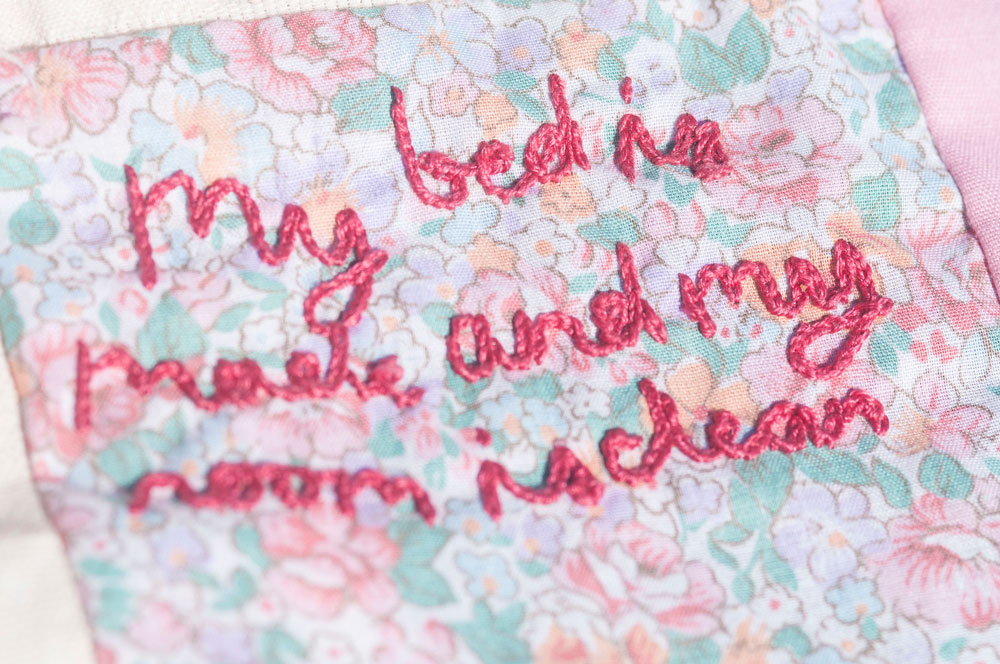 my bed is
made and my
room is clean